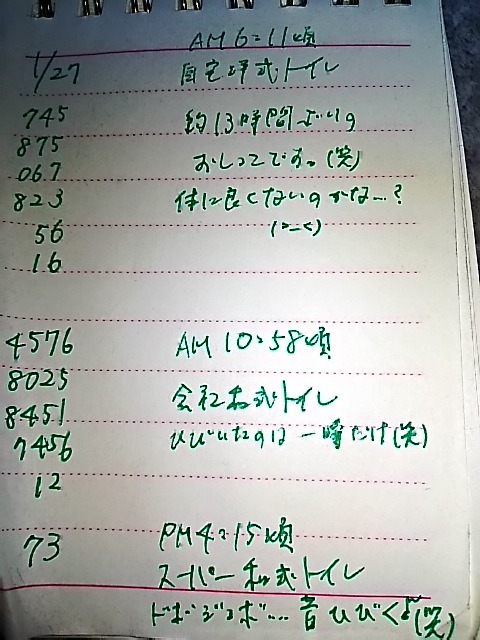 AM 6:11頃
1/27 自宅洋式トイレ
745 約13時間ぶりの
875 おしっこです。(笑)
067
823 体に良くないのかな…?
56
16
4576 AM 10:58頃
8025
8451 会社和式トイレ
7456 ひびいたのは一瞬だけ(笑)
12
73 PM 4:15頃
スーパー和式トイレ
ドボジョボ…音ひびくよ(笑)